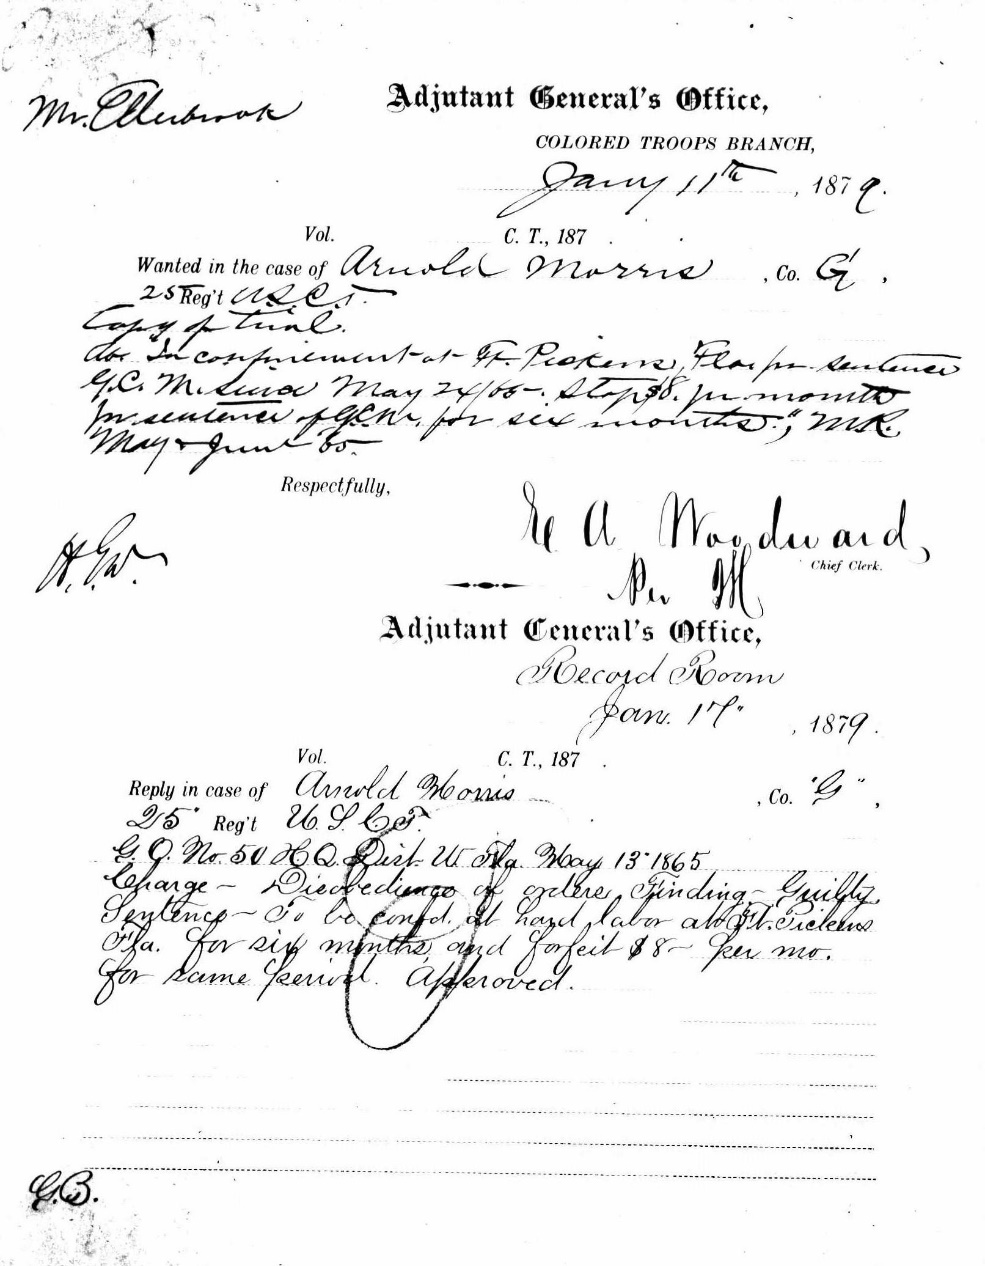 Mr. Ellerbrook
Adjutant General's Office,
COLORED TROOPS BRANCH,
Jany 11th, 1879.
Vol. C. T., 187 .
Wanted in the case of Arnold Morris, Co. G,
25 Reg't U.S.C.T.
Copy of trial.
"In confinement at Ft. Pickens, Fla pr. sentence
G.C.M. since May 24/65. Stop $8. pr. month
pr. sentence of G.C.M. for six months.", M.R.
May & June 65.
Respectfully,
A. Woodward,
Chief Clerk.
Per M
H.G.W.
Adjutant General's Office,
Record Room
Jan. 17", 1879.
Vol. C. T., 187 .
Reply in case of Arnold Morris, Co. "G",
25" Reg't U.S.C.T.
G.O. No. 50 HQ. Dist. W. Fla. May 13" 1865
Charge – Disobedience of orders Finding – Guilty
Sentence – To be confd. at hard labor at Ft. Pickens
Fla. for six months, and forfeit $8– per mo.
for same period. Approved.
G.B.